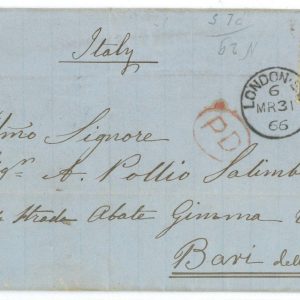 Italy
LONDON
6
MR 31
66
PD
Signore
A. Pollio Salimb
Strada Abate Gimma
Bari del